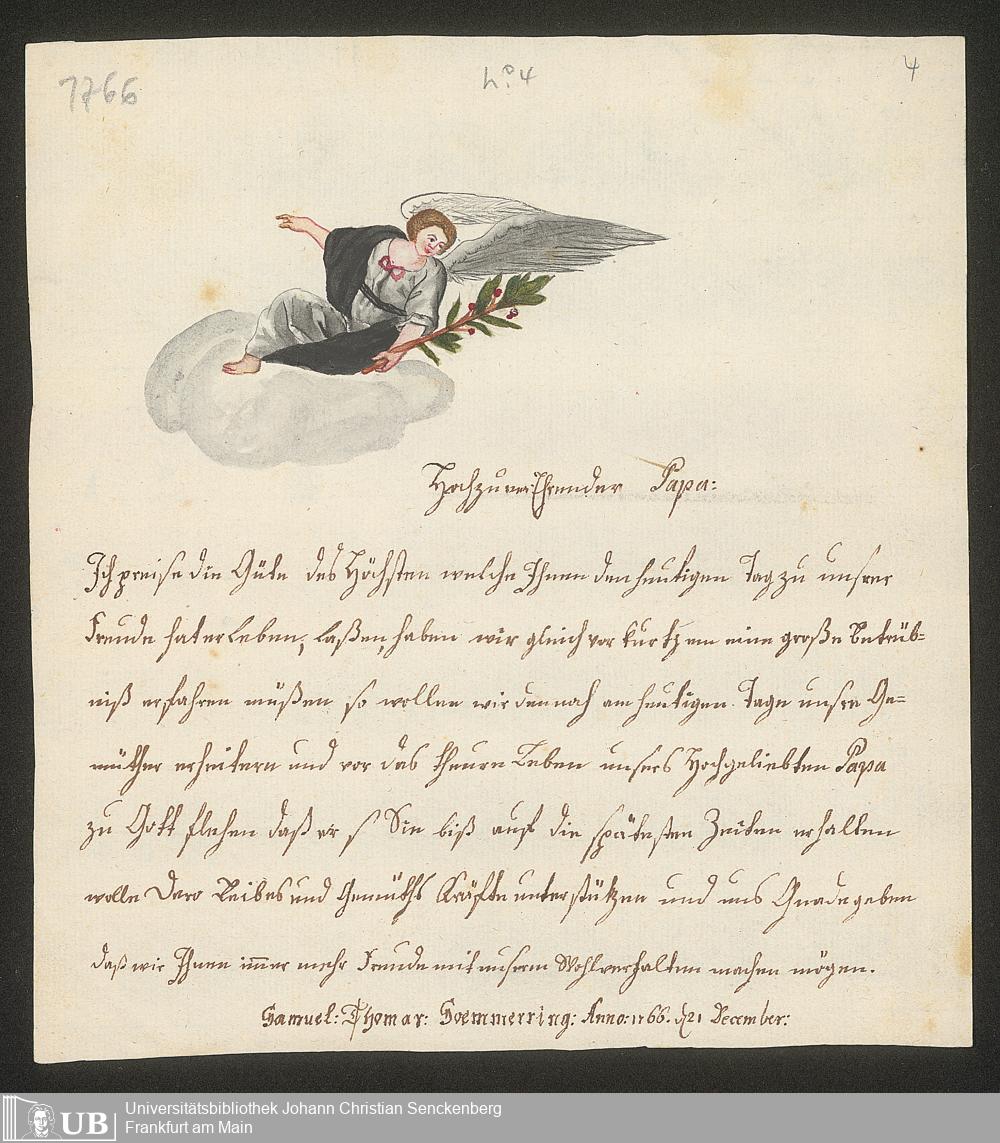 1766
No. 4
4
Hochzuver Ehrender Papa:
Ich preise die Güte des Höchsten welche Ihnen den heutigen Tag zu unsrer
Freude hat er Leben, laßen, haben wir gleich vor kurtzem eine große Betrüb=
niß erfahren müßen so wollen wir dennoch am heutigen Tage unsre Ge=
müther erheitern und vor das theure Leben unsers Hochgeliebten Papa
zu Gott flehen daß er Sie biß auf die spätesten Zeiten erhalten
wolle Dero Leibes und Gemüths Kräfte unterstützen und uns Gnade geben
daß wir Ihnen im̄er mehr Freude mit unserm Wohlverhalten machen mögen.
Samuel: Thomas: Soemmerring: Anno: 1766. d 21 December:
UB
Universitätsbibliothek Johann Christian Senckenberg
Frankfurt am Main